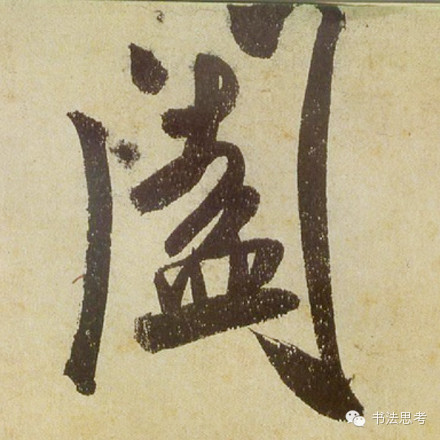 闔
书法思考